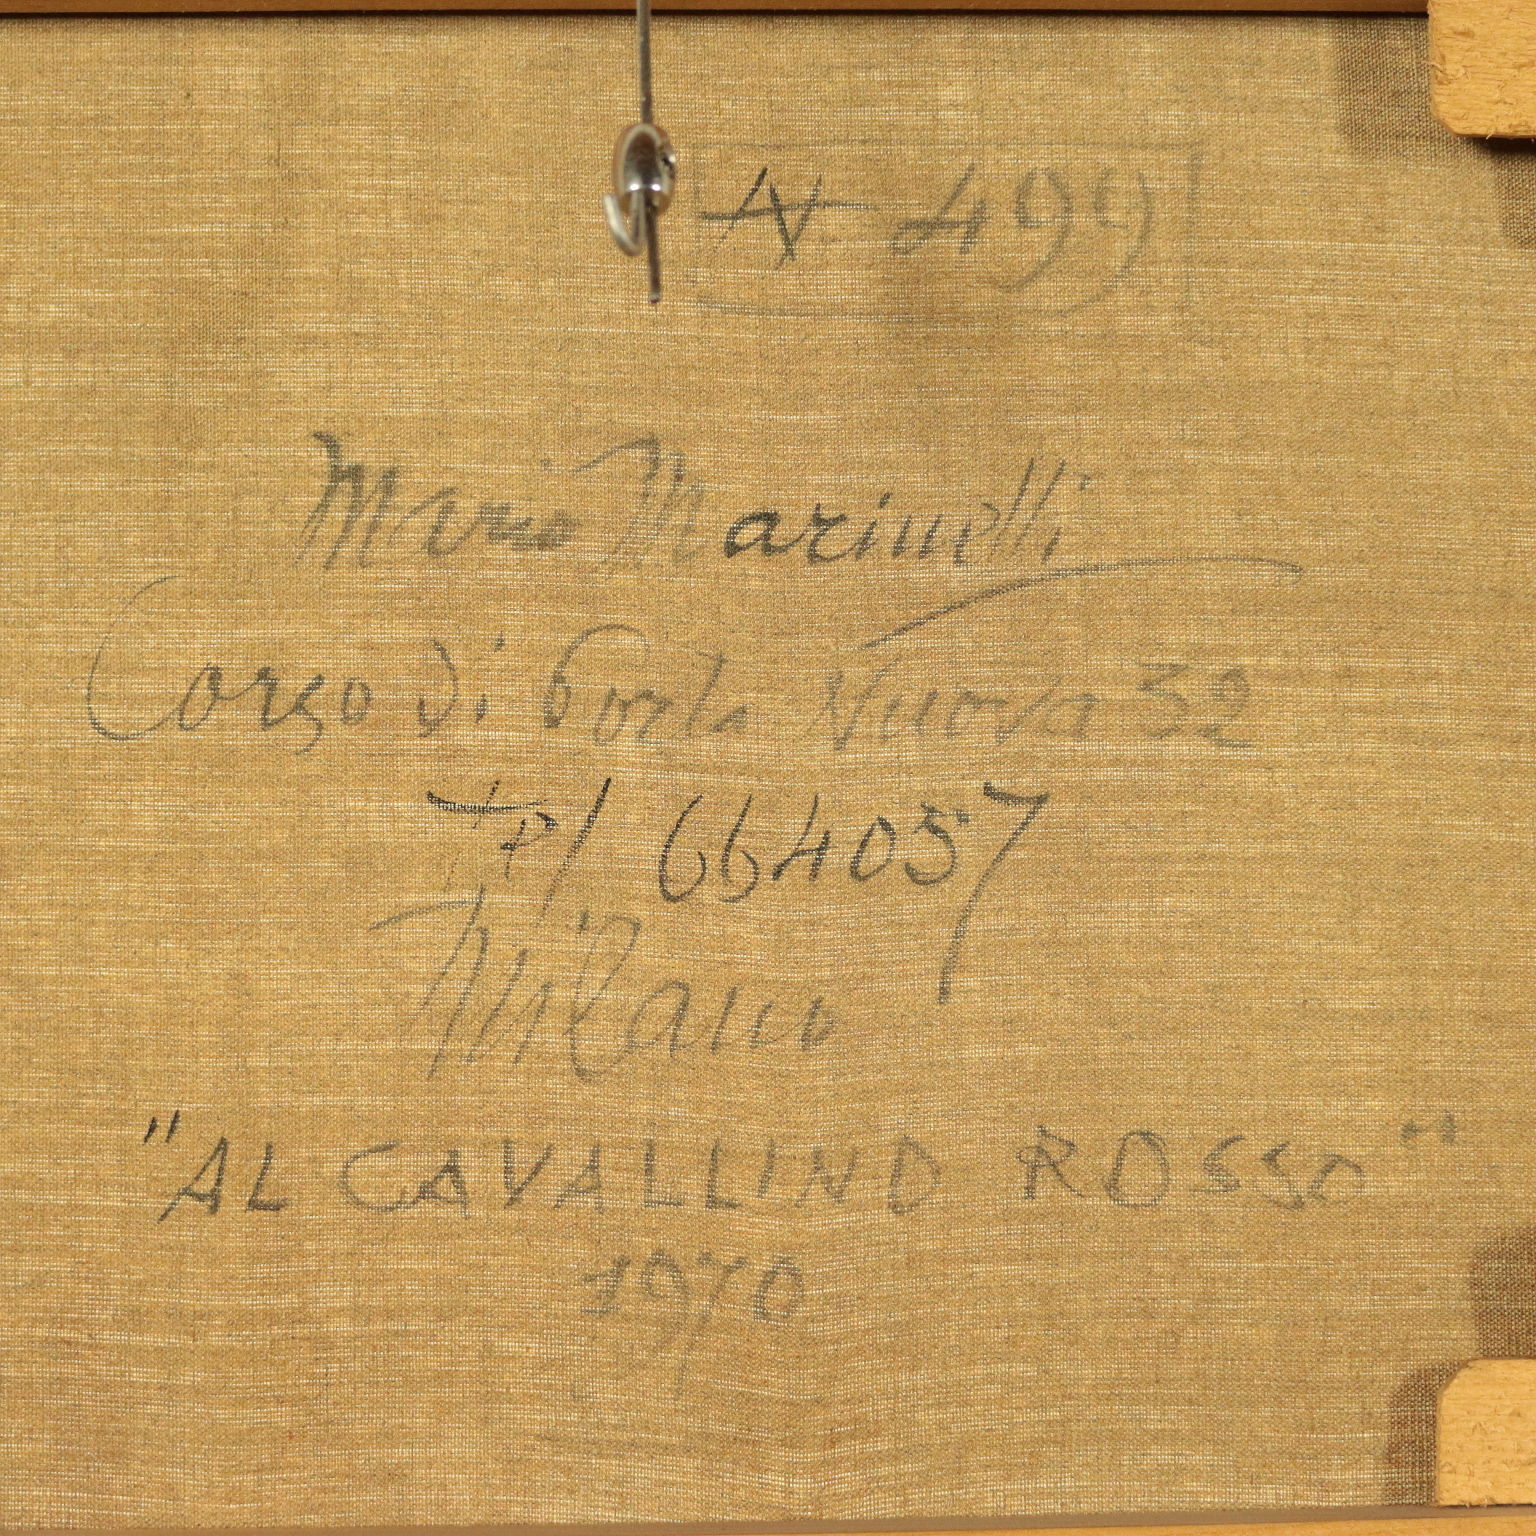 N 499
Mario Marinelli
Corso di Porta Nuova 32
Tel 664057
Milano
"AL CAVALLINO ROSSO"
1970